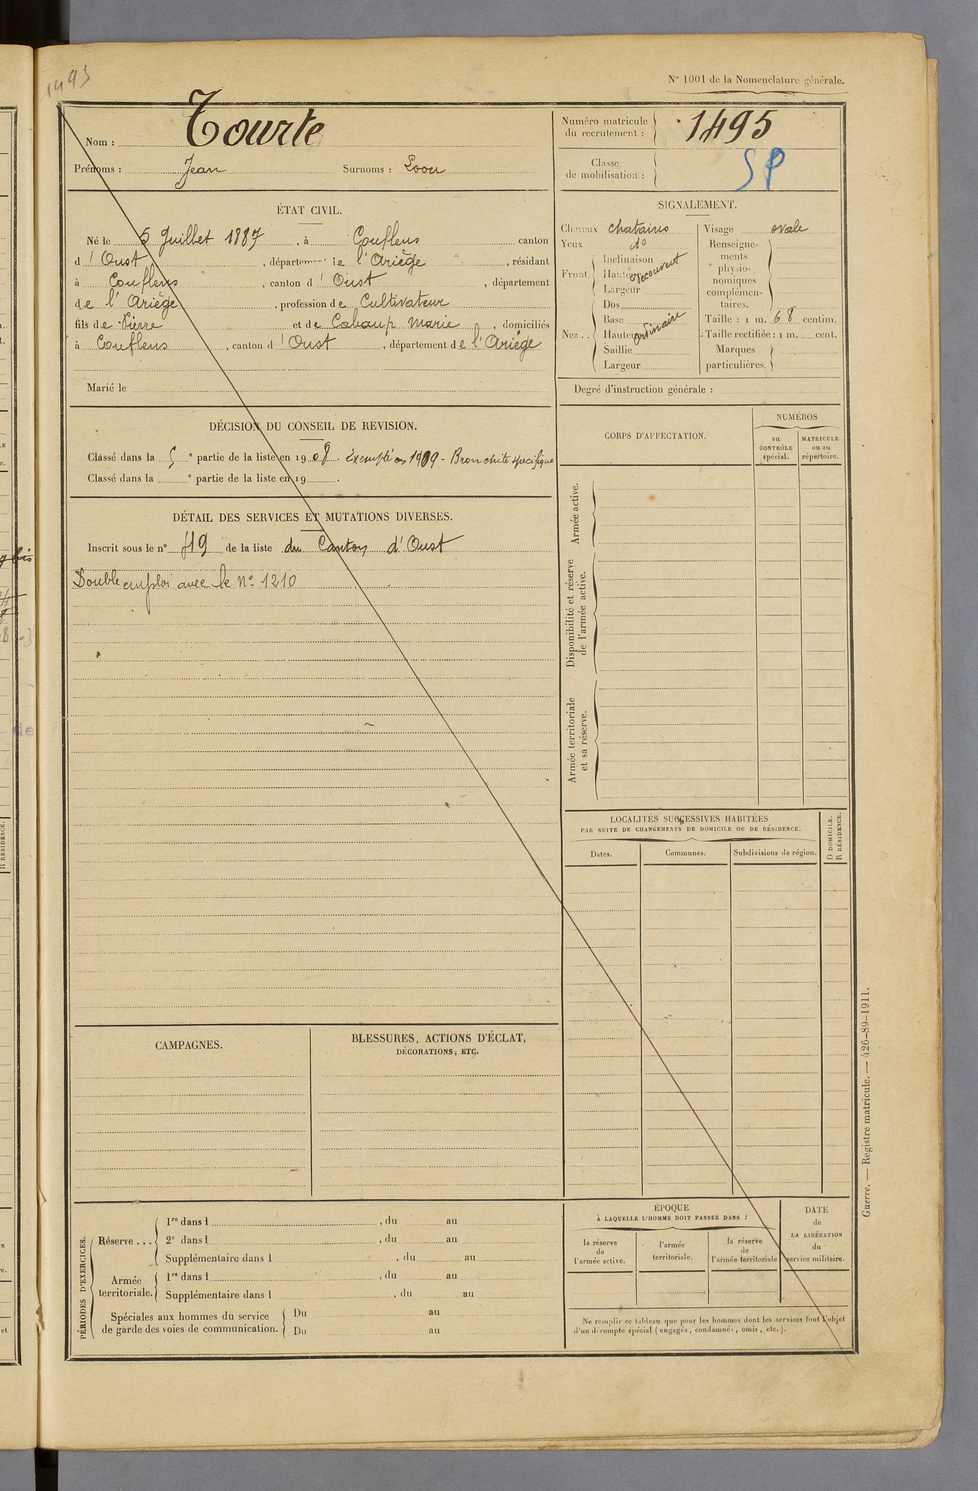 1495
N° 1001 de la Nomenclature générale.
Nom : Tourte
Prénoms : Jean Surnoms :
Numéro matricule du recrutement : 1495
Classe de mobilisation : SP
ÉTAT CIVIL.
Né le 5 Juillet 1887, à Couflens canton
d'Oust, département de l'Ariège, résidant
à Couflens, canton d'Oust, département
de l'Ariège, profession de Cultivateur
fils de Pierre et de Cabaup Marie, domiciliés
à Couflens, canton d'Oust, département de l'Ariège
Marié le
SIGNALEMENT.
Cheveux chatains
Yeux do
Front Inclinaison
Hauteur découvert
Largeur
Nez .. Dos
Base
Hauteur ordinaire
Saillie
Largeur
Visage ovale
Renseignements physionomiques complémentaires.
Taille : 1 m. 68 centim.
Taille rectifiée : 1 m. cent.
Marques particulières.
Degré d'instruction générale :
DÉCISION DU CONSEIL DE REVISION.
Classé dans la 5e partie de la liste en 1908. Exempté en 1909 - Bronchite spécifique
Classé dans la e partie de la liste en 19 .
DÉTAIL DES SERVICES ET MUTATIONS DIVERSES.
Inscrit sous le n° 49 de la liste du Canton d'Oust
Double emploi avec le N° 1210
CORPS D'AFFECTATION.
NUMÉROS
au CONTRÔLE spécial.
MATRICULE ou au répertoire.
Armée active.
Disponibilité et réserve de l'armée active.
Armée territoriale et sa réserve.
LOCALITÉS SUCCESSIVES HABITÉES
PAR SUITE DE CHANGEMENTS DE DOMICILE OU DE RÉSIDENCE.
Dates.
Communes.
Subdivisions de région.
D DOMICILE.
R RÉSIDENCE.
CAMPAGNES.
BLESSURES, ACTIONS D'ÉCLAT,
DÉCORATIONS, ETC.
PÉRIODES D'EXERCICES.
Réserve ...
1re dans l , du au
2e dans l , du au
Supplémentaire dans l , du au
Armée territoriale.
1re dans l , du au
Supplémentaire dans l , du au
Spéciales aux hommes du service
de garde des voies de communication.
Du au
Du au
ÉPOQUE
À LAQUELLE L'HOMME DOIT PASSER DANS :
la réserve de l'armée active.
l'armée territoriale.
la réserve de l'armée territoriale
DATE de LA LIBÉRATION du service militaire.
Ne remplir ce tableau que pour les hommes dont les services font l'objet
d'un décompte spécial (engagés, condamnés, omis, etc.).
Guerre. — Registre matricule. — 426-89-1911.